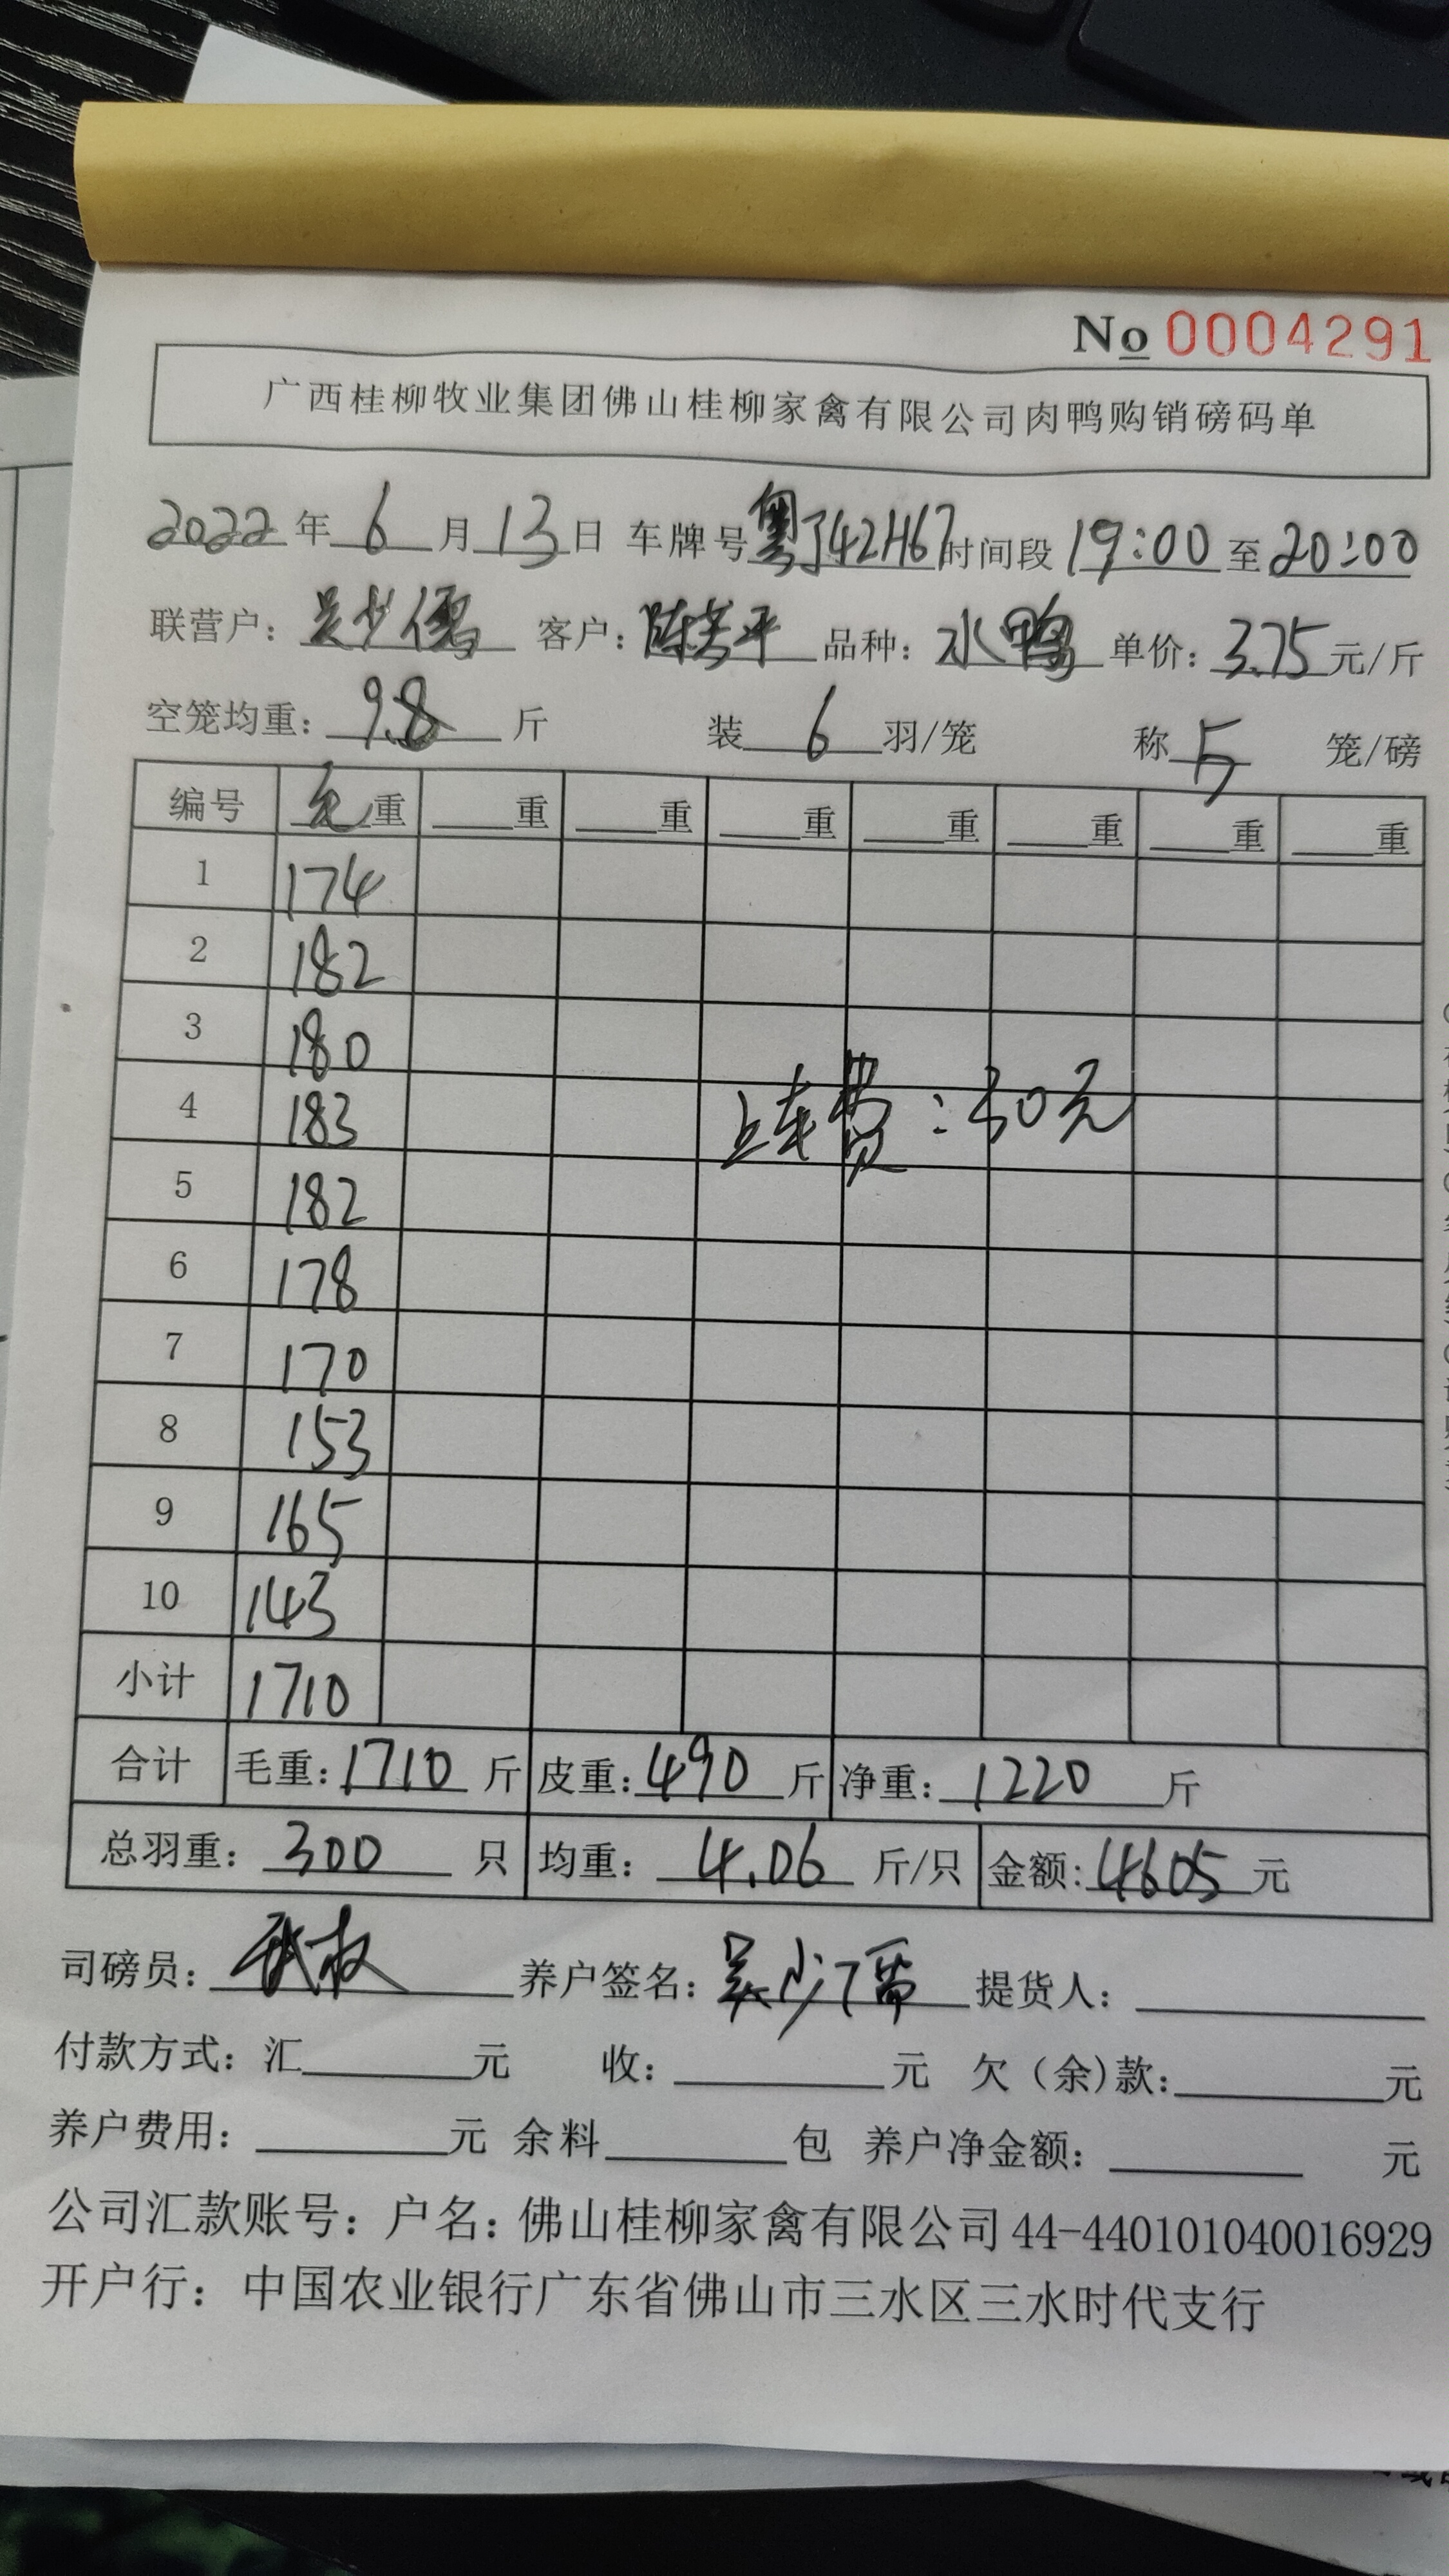 No 0004291
广西桂柳牧业集团佛山桂柳家禽有限公司肉鸭购销磅码单
2022年 6 月 13 日 车牌号 粤J42H67 时间段 19:00 至 20:00
联营户: 吴少儒 客户: 陈 平 品种: 水鸭 单价: 3.75 元/斤
空笼均重: 9.8 斤 装 6 羽/笼 称 5 笼/磅
编号 毛重 重 重 重 重 重 重 重
1 174
2 182
3 180
4 183 上车费:30元
5 182
6 178
7 170
8 153
9 165
10 143
小计 1710
合计 毛重: 1710 斤 皮重: 490 斤 净重: 1220 斤
总羽重: 300 只 均重: 4.06 斤/只 金额: 4605 元
司磅员: 养户签名: 吴少儒 提货人:
付款方式: 汇 元 收: 元 欠(余)款: 元
养户费用: 元 余料 包 养户净金额: 元
公司汇款账号: 户名: 佛山桂柳家禽有限公司 44-440101040016929
开户行: 中国农业银行广东省佛山市三水区三水时代支行